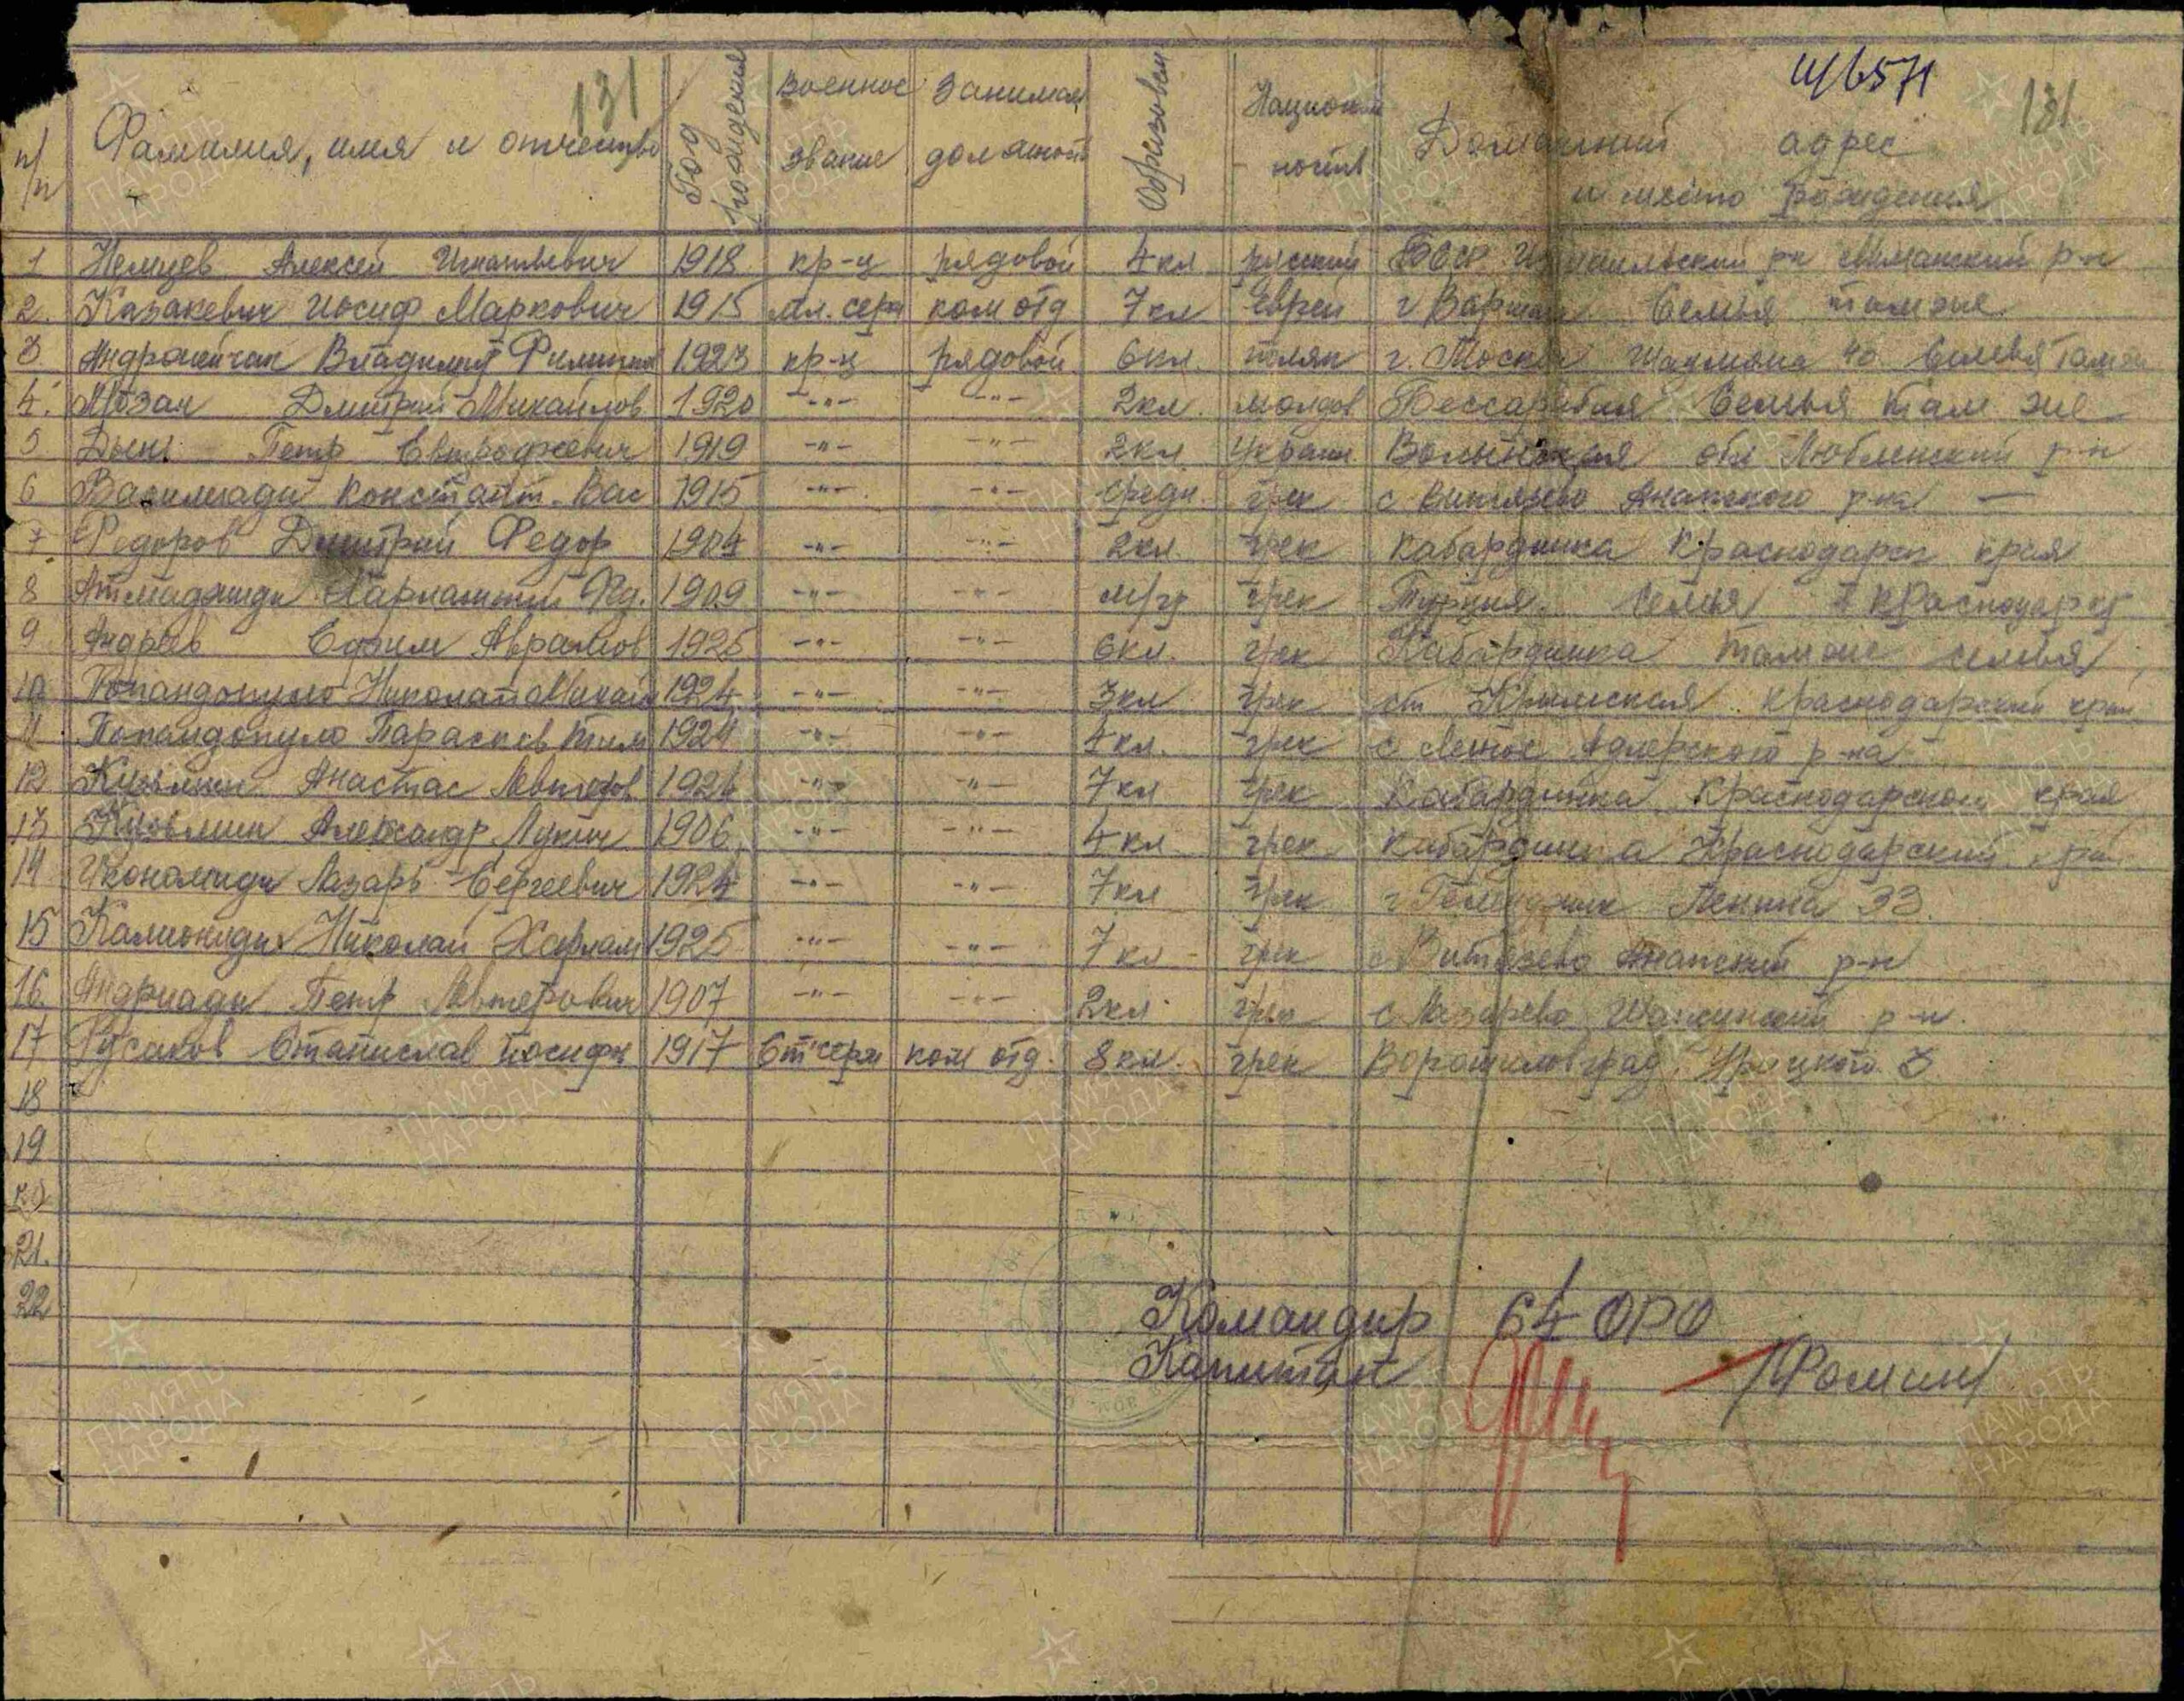 п/п Фамилия, имя и отчество Год рождения Военное звание Занимаем должность Образован Национальность Домашний адрес и место рождения
131
131
1 Немцев Алексей 1918 кр-ц рядовой 4кл русский р-н
2. Казакевич Иосиф Маркович 1915 мл. серж ком отд 7кл Еврей г Варшава Семья там же
3 Владимир 1923 кр-ц рядовой 6кл. поляк г. Москва 40 Семья там же
4. Дмитрий Михайлов 1920 -"- -"- 2кл. молдов Бессарабия Семья там же
5 Петр 1919 -"- -"- 2кл. Украин Волынская обл Люблинский р-н
6 Василиади Констант. Вас 1915 -"- -"- средн. грек с Анапского р-на —
7 Федоров Дмитрий Федор 1904 -"- -"- 2кл. грек Кабардинка Краснодарск края
8 1909 -"- -"- м/гр грек Турция. Семья Краснодарск
9 Андреев Ефим Аврамов 1925 -"- -"- 6кл. грек Кабардинка там же семья
10 Попандопуло Николай Михайл 1924 -"- -"- 3кл грек ст Крымская Краснодарский край
11 Попандопуло Параскев 1924 -"- -"- 4кл. грек с Лесное Адлерского р-на
12 Анастас Левтеров 1926 -"- -"- 7кл грек Кабардинка Краснодарского края
13 Александр Лукич 1906 -"- -"- 4кл грек Кабардинка Краснодарский край
14 Икономиди Лазарь Сергеевич 1924 -"- -"- 7кл грек г Геленджик Ленина 33.
15 Николай Харлам 1925 -"- -"- 7кл грек с Витязево Анапский р-н
16. Андриади Петр Левтерович 1907 -"- -"- 2кл. грек с Лазарево р-н.
17 Русаков Станислав Иосифи 1917 Ст серж ком отд. 8кл. грек Ворошиловград. Урицкого 3
18
19
20
21.
22
Командир 64 ОРО
Капитан /Фомин/
ПАМЯТЬ НАРОДА